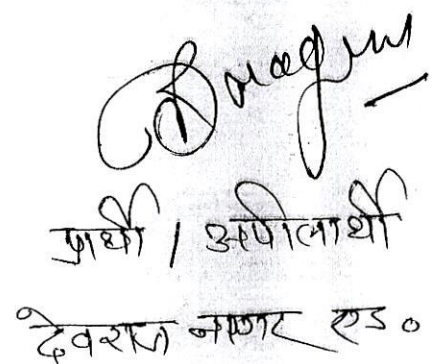 प्रार्थी / अपीलार्थी
देवराज नागर एड०